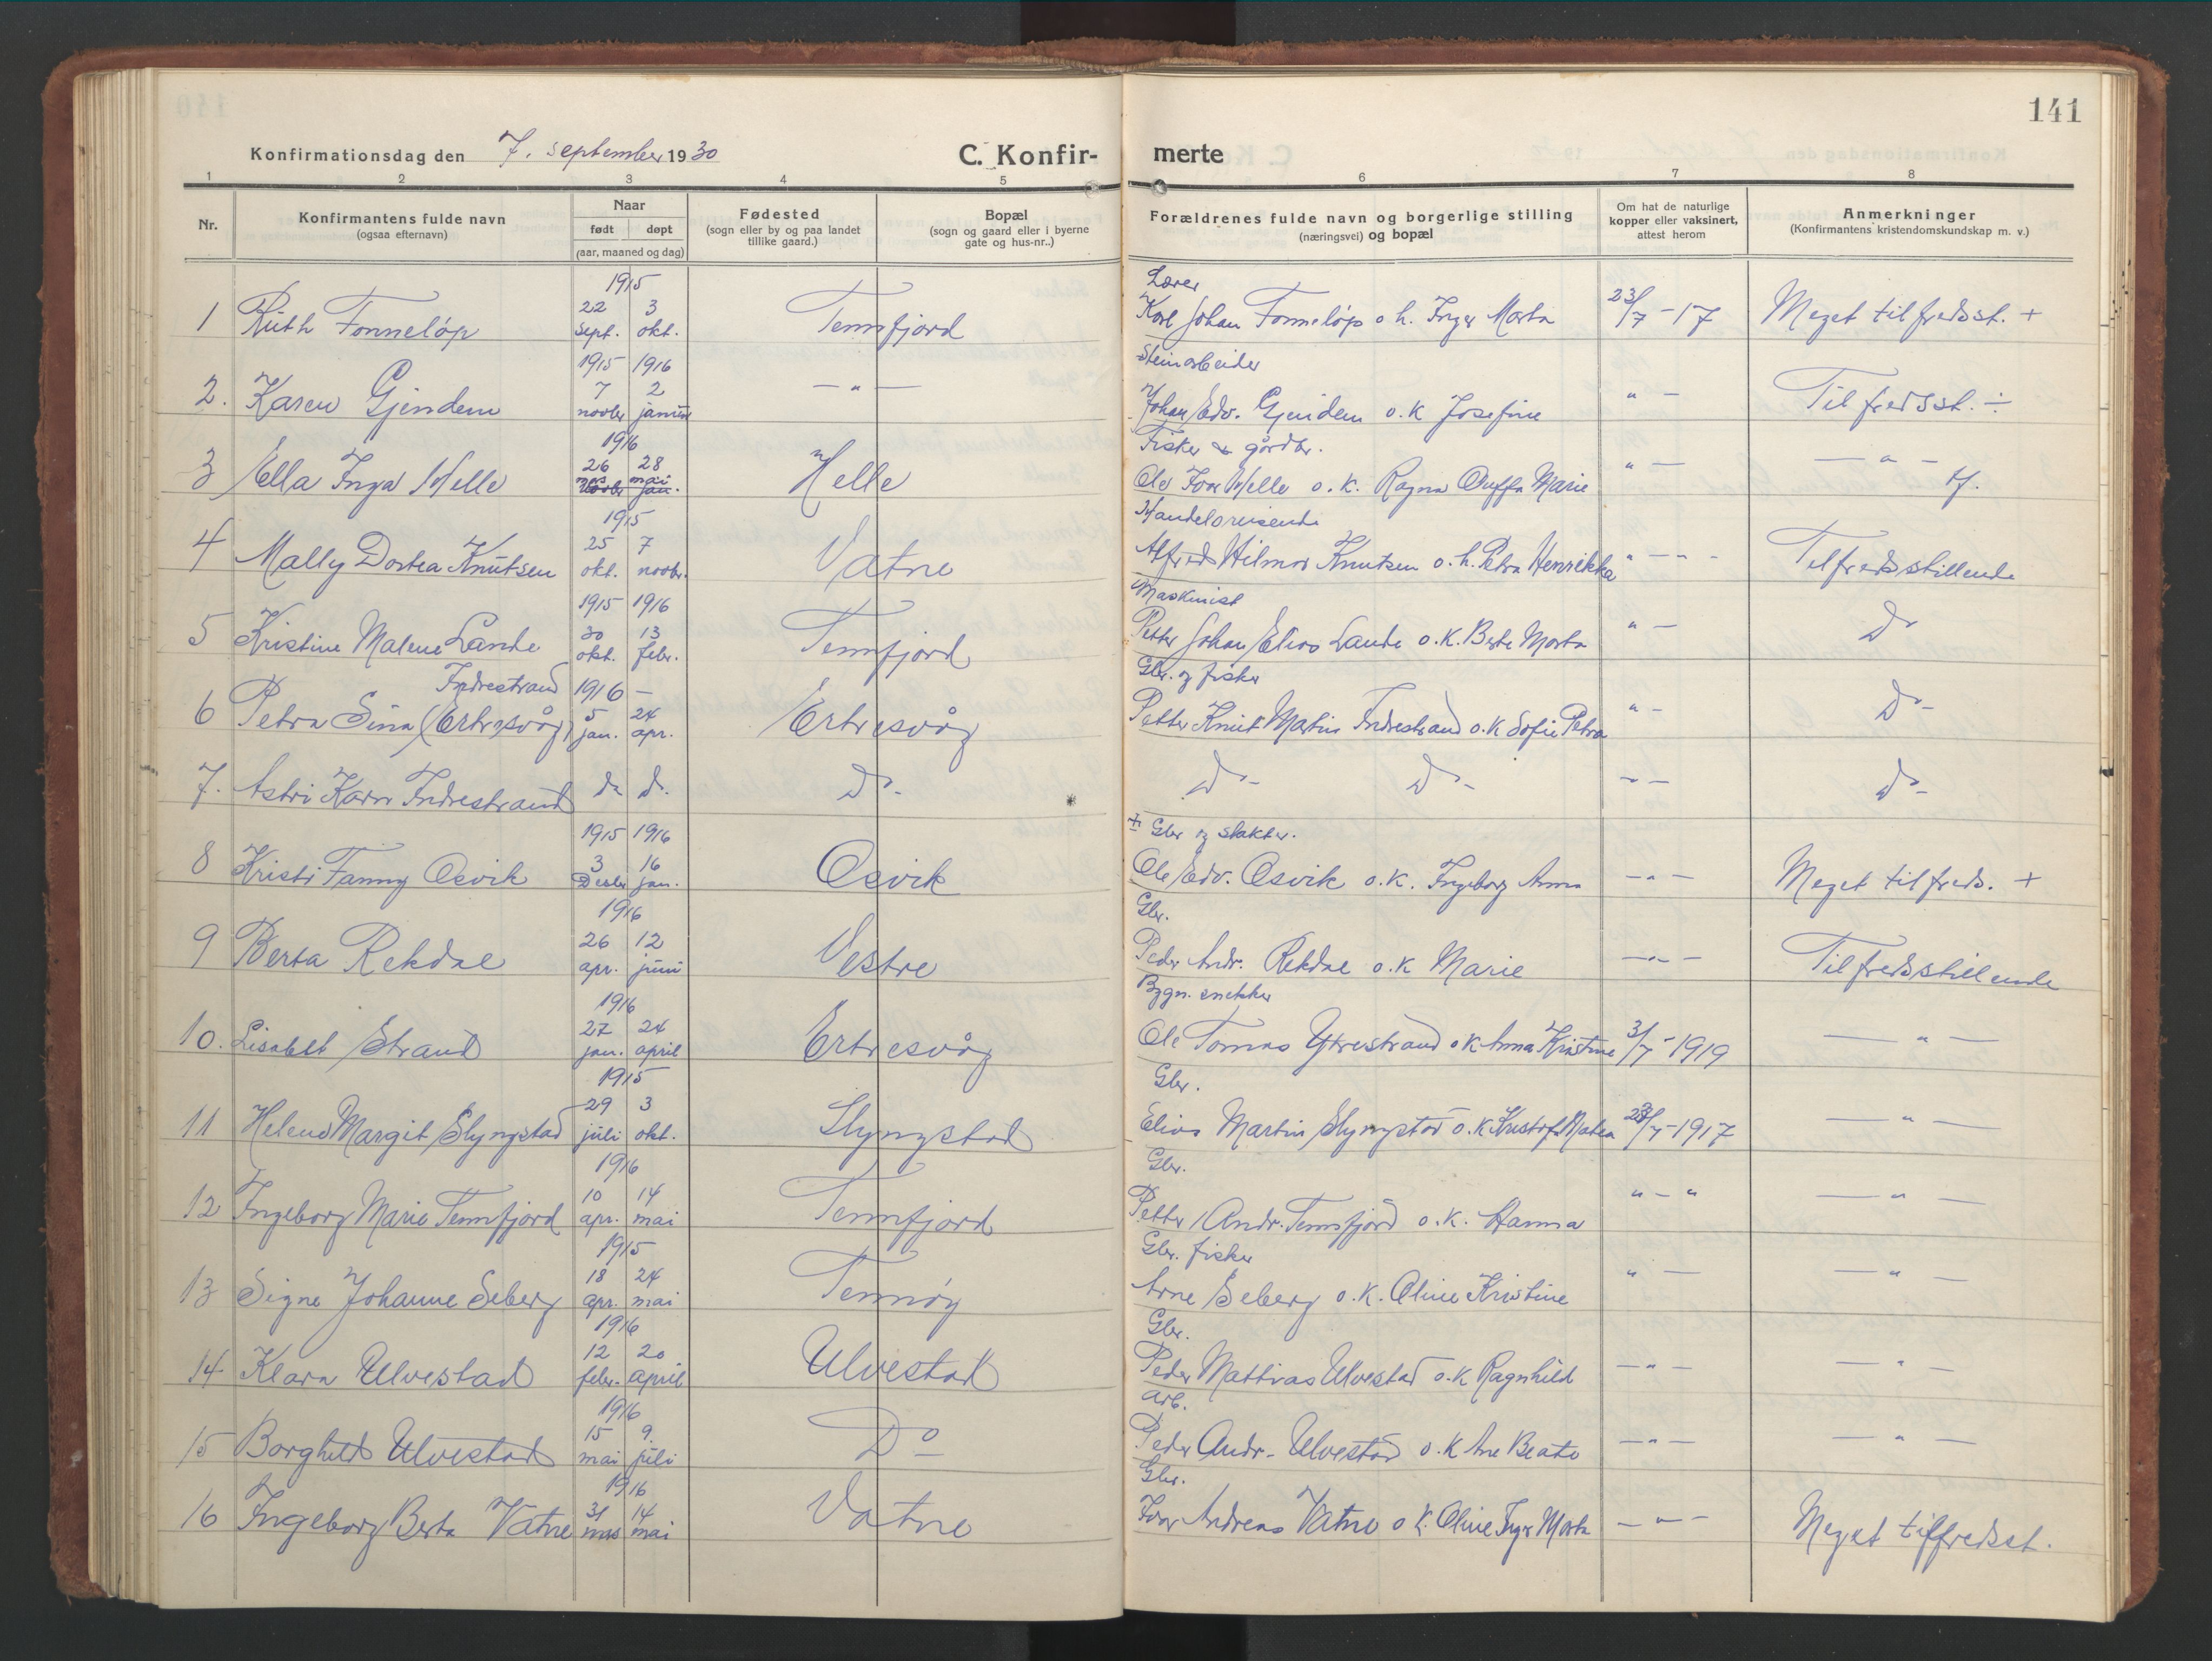 141
Konfirmationsdag den 7. september 1930
C. Konfirmerte
1 2 3 4 5 6 7 8
Nr.
Konfirmantens fulde navn
(ogsaa efternavn)
Naar
født døpt
(aar, maaned og dag)
Fødested
(sogn eller by og paa landet
tillike gaard.)
Bopæl
(sogn og gaard eller i byerne
gate og hus-nr..)
Forældrenes fulde navn og borgerlige stilling
(næringsvei) og bopæl
Om hat de naturlige
kopper eller vaksinert,
attest herom
Anmerkninger
(Konfirmantens kristendomskundskap m. v.)
1915 Lærer
1 Ruth Tonneløp 22 sept. 3 okt. Tennfjord Karl Johan Tonneløp o. h. Inger Marta 23/7 - 17 Meget tilfredsst. +
1915 1916 Steinarbeider
2. Karen Gjendem 7 novbr 2 januar — " — Johan Edv. Gjendem o. k Josefine " — Tilfredsst. ÷
1916 Fisker & gårdbr.
3 Ella Inga Helle 26 mars 28 mai Helle Ole Ivar Helle o. k. Ragna Marie " — — " —
1915 Handelsreisende
4 Mally Dortea Knutsen 25 okt. 7 novbr. Vatne Alfred Hilmar Knutsen o. h. Petra Henrikka " — " - Tilfredsstillende
1915 1916 Maskinist
5 Kristine Malene Lande 30 okt. 13 febr. Tennfjord Petter Johan Elias Lande o. k. Berte Marta " — Do
Indrestrand 1916 — Gbr. og fisker
6 Petra Sina (Ertresvåg) 5 jan. 24 apr. Ertresvåg Petter Knut Martin Indrestrand o. k Sofie Petra " - Do -
7. Astri Karn Indrestrand do do. Do - Do - Do - " — Do -
1915 1916 + Gbr og slakter.
8 Kristi Fanny Osvik 3 Decbr 16 jan. Osvik Ole Edv. Osvik o. k. Ingeborg Anna — " — Meget tilfreds. +
1916 Gbr.
9 Berta Rekdal 26 apr. 12 juni Vestre Peder Andr. Rekdal o. k Marie — " — Tilfredsstillende
1916 Bygn. snekker
10. Lisabet Strand 27 jan. 24 april Ertresvåg Ole Tomas Ytrestrand o k Anna Kristine 3/7 - 1919 — " —
1915 Gbr.
11 Helene Margit Slyngstad 29 juli 3 okt. Slyngstad Elias Martin Slyngstad o. k Matea 23/7 - 1917 — " —
1916 Gbr.
12 Ingeborg Marie Tennfjord 10 apr. 14 mai Tennfjord Petter Andr. Tennfjord o. k. Hanna " — " — " —
1915 Gbr. fisker
13 Signe Johanne Seberg 18 apr. 24 mai Tennøy Arne Seberg o. k. Oline Kristine " — — " —
1916 Gbr.
14 Klara Ulvestad 12 febr. 20 april Ulvestad Peder Mattias Ulvestad o. k Ragnhild — " — — " —
1916 arb.
15 Borghild Ulvestad 15 mai 9. juli Do Peder Andr. Ulvestad o. k Ane Beate — " — — " —
1916 Gbr.
16 Ingeborg Berta Vatne 31 mars 14 mai Vatne Ivar Andreas Vatne o k. Oline Inger Marta — " — Meget tilfredsst.